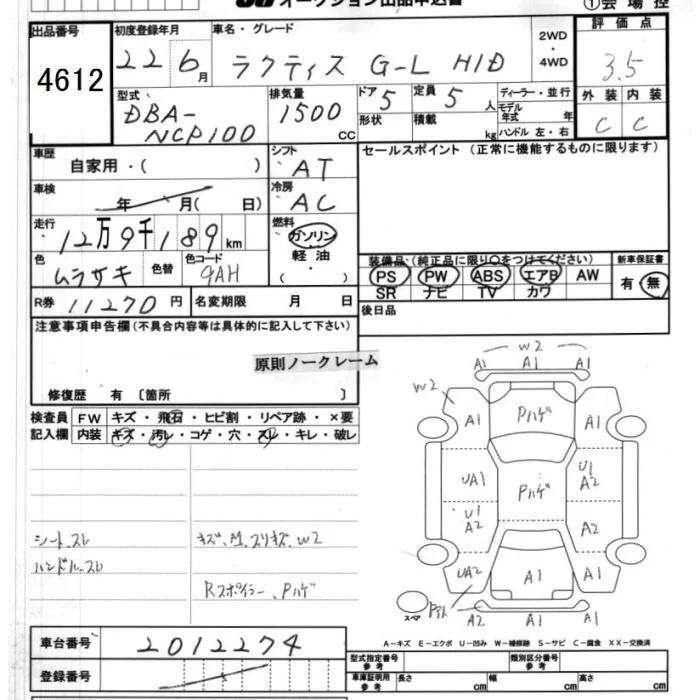 オークション出品申込書
①会場控
出品番号
4612
初度登録年月
22 6月
車名・グレード
ラクティス G-L HID
2WD
・
4WD
評価点
3.5
型式
DBA-
NCP100
排気量
1500
CC
ドア 5
形状
定員 5人
積載 kg
ディーラー・並行
モデル
年式 年
ハンドル 左・右
外装 内装
C C
車歴
自家用・( )
シフト
AT
セールスポイント (正常に機能するものに限ります)
車検
年 月( 日)
冷房
AC
走行
12万9千189km
燃料
ガソリン
軽油
・
( )
色
ムラサキ
色替
色コード
9AH
装備品 (純正品に限り○をつけてください)
新車保証書
PS PW ABS エアB AW
SR ナビ TV カワ
有・無
R券 11270円
名変期限 月 日
後日品
注意事項申告欄(不具合内容等は具体的に記入して下さい)
原則ノークレーム
修復歴 有〔箇所 〕
検査員
記入欄
FW キズ・飛石・ヒビ割・リペア跡・×要
内装 キズ・汚レ・コゲ・穴・スレ・キレ・破レ
シートスレ
ハンドルスレ
キズ、凹、スリキズ、W2
Rスポイラー、Pハゲ
W2
A1 A1 A1
W2
A1 Pハゲ A1
UA1 Pハゲ U1
A2
U1
A2 A2
UA2 A1 A1
スペア
A2 A1 A1
A-キズ E-エクボ U-凹み W-補修跡 S-サビ C-腐食 XX-交換済
車台番号 2012274
登録番号
型式指定番号
参考
類別区分番号
参考
車庫証明用
参考
長さ cm 幅 cm 高さ cm